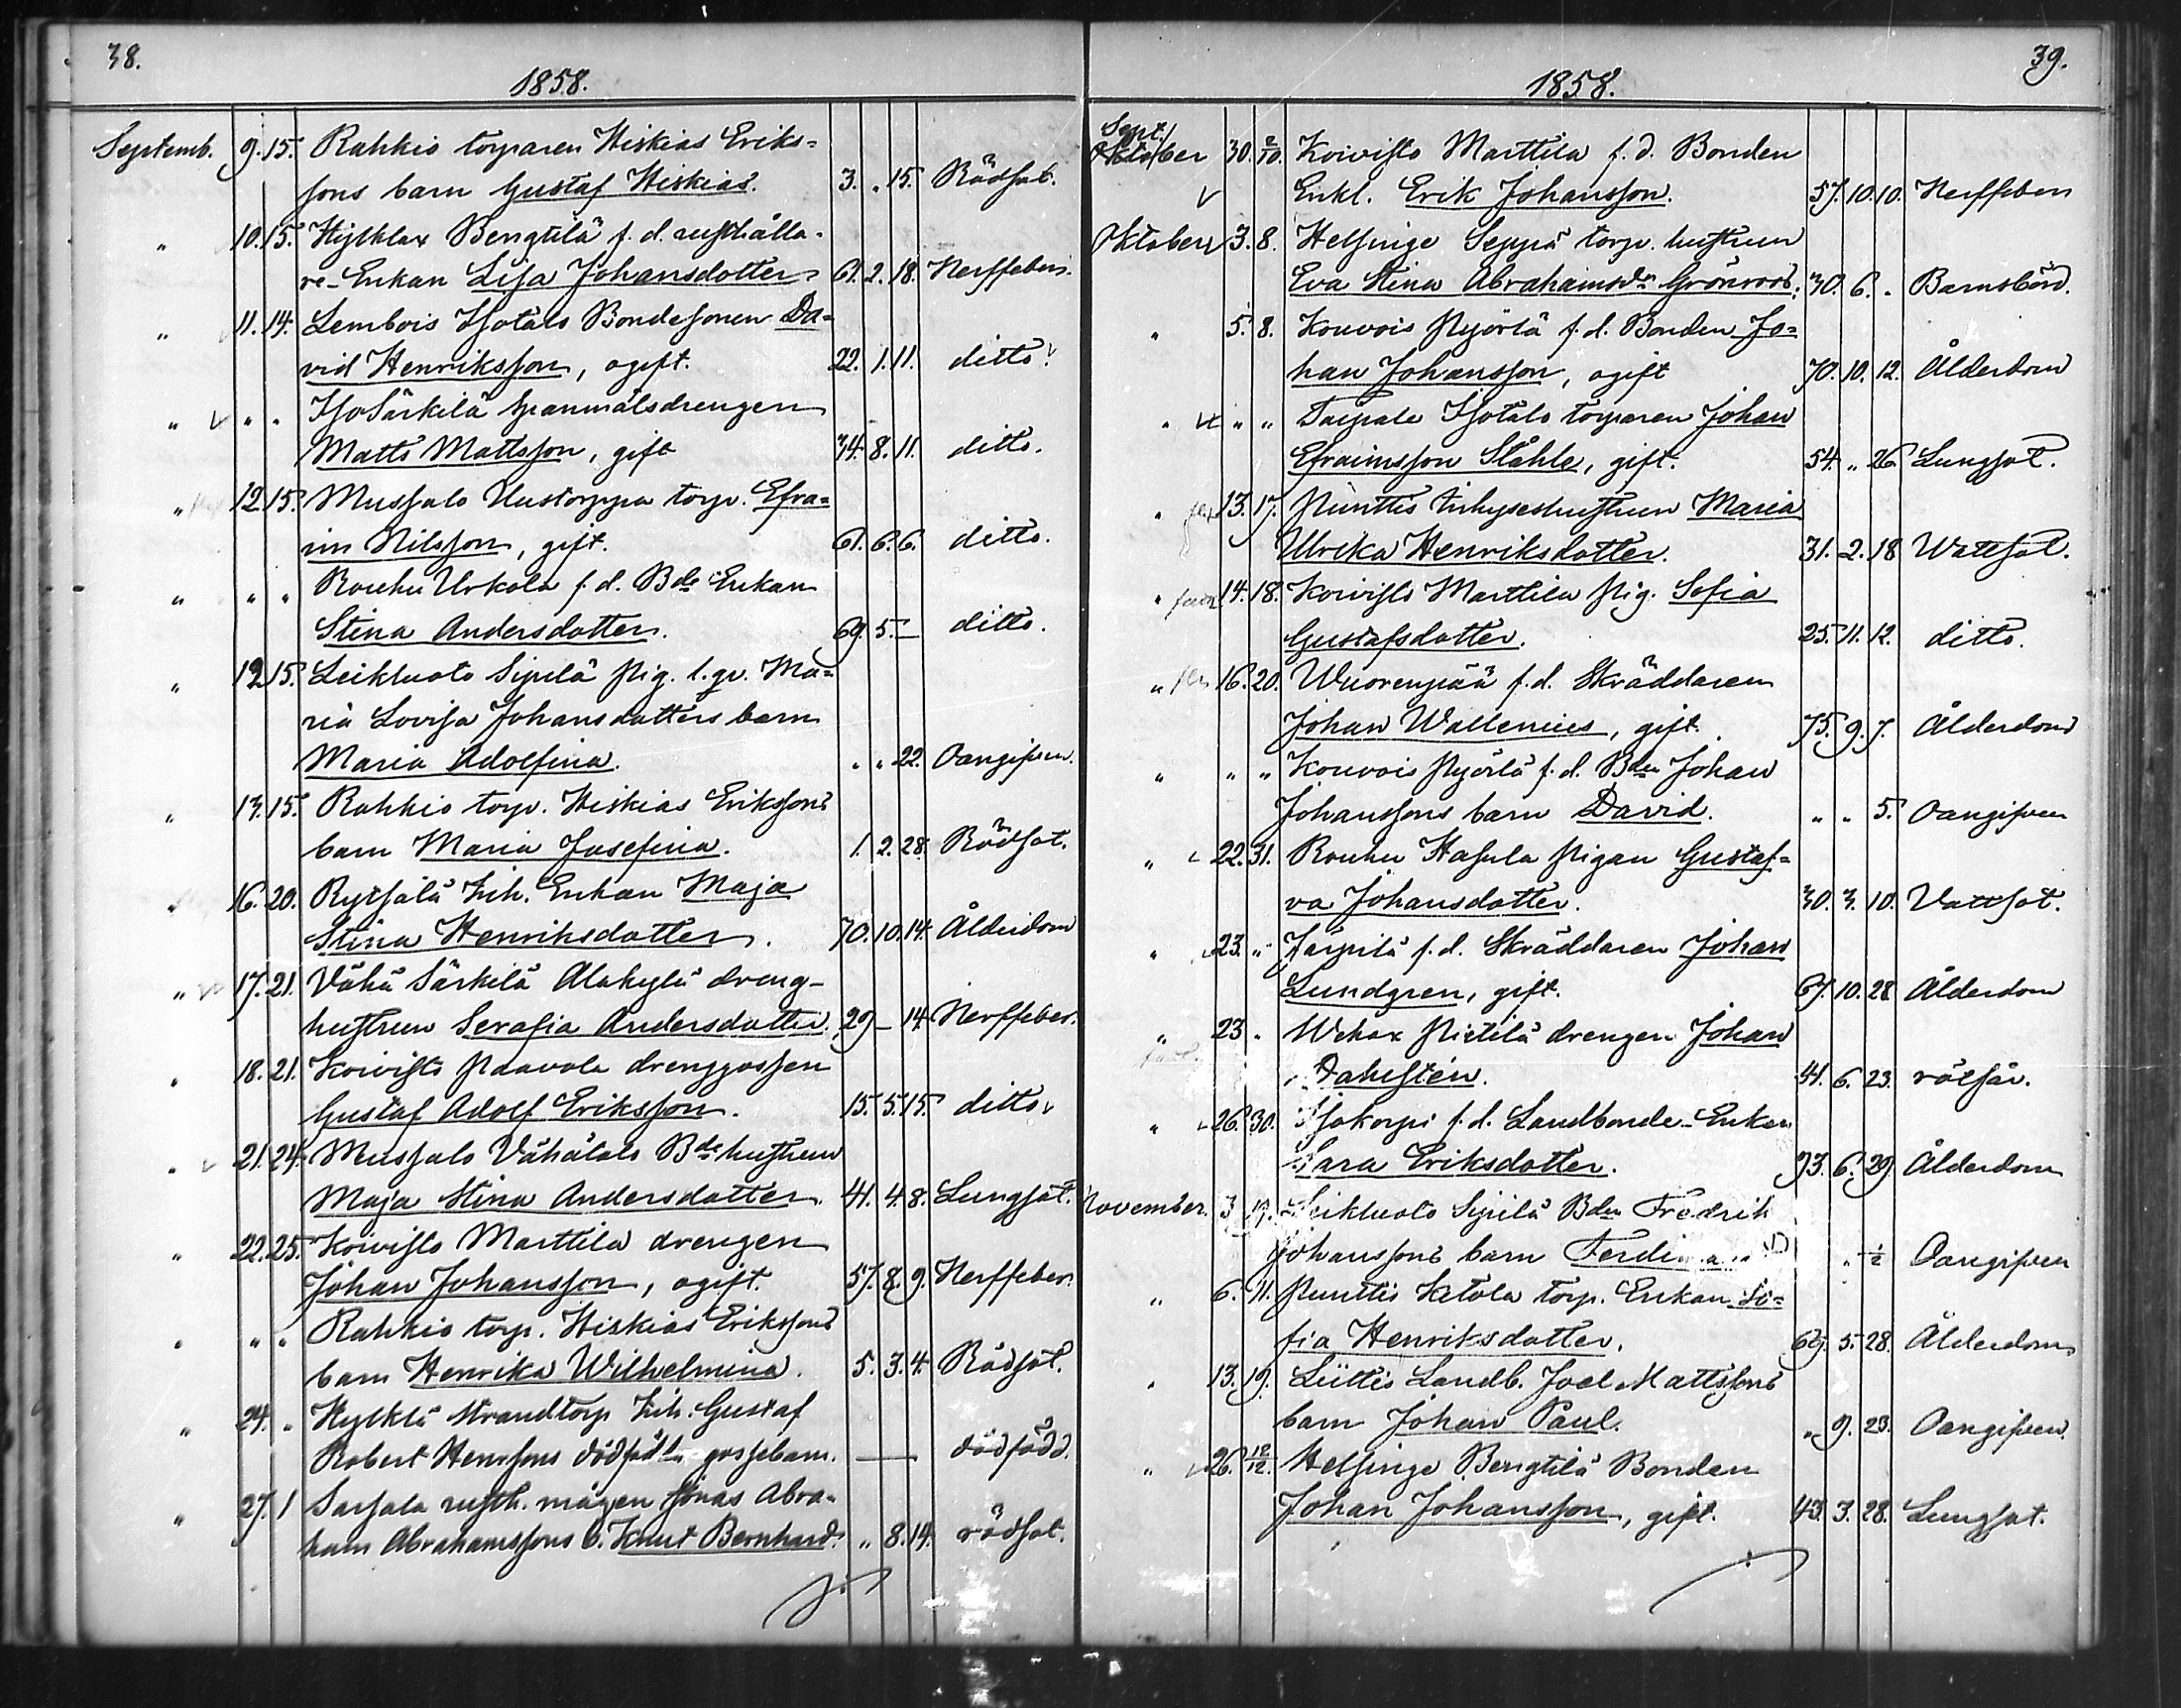 38.
1858.
Septemb. 9. 15. Rahkio torparen Hiskias Eriks-
sons barn Gustaf Hiskias. 3. „ 15. Rödsot.
„ 10. 15. Hylklax Bengtilä f. d. rusthålla-
re-Enkan Lisa Johansdotter 61. 2. 18. Nerffeber.
„ 11. 14. Lembois Isotalo Bondesonen Da-
vid Henriksson, ogift. 22. 1. 11. ditto.
„ „ „ Iso Särkilä spanmålsdrengen
Matts Mattsson, gift 34. 8. 11. ditto.
„ 12. 15. Mussalo Uustorppa torp. Efra-
im Nilsson, gift. 61. 6. 6. ditto.
„ „ „ Rouhu Urkola f. d. Bde Enkan
Stina Andersdotter. 69. 5. — ditto.
„ 12. 15. Leikluoto Sipilä pig. l. qv. Ma-
ria Lovisa Johansdotters barn
Maria Adolfina. „ „ 22. Oangifven.
„ 13. 15. Rahkio torp. Hiskias Erikssons
barn Maria Josefina. 1. 2. 28. Rödsot.
„ 16. 20. Rytsälä Inh. Enkan Maja
Stina Henriksdotter. 70. 10. 14. Ålderdom
„ 17. 21. Vähä Särkilä Alakylä dreng-
hustrun Serafia Andersdotter. 29 — 14. Nerffeber.
„ 18. 21. Koivisto Paavola drenggossen
Gustaf Adolf Eriksson. 15. 5. 15. ditto
„ 21. 24. Mussalo Vähätalo Bde hustrun
Maja Stina Andersdotter. 41. 4. 8. Lungsot.
„ 22. 25. Koivisto Marttila drengen
Johan Johansson, ogift. 57. 8. 9. Nerffeber.
„ „ „ Rahkio torp. Hiskias Erikssons
barn Henrika Wilhelmina. 5. 3. 4. Rödsot.
„ 24. „ Hylklä strandtorp Inh. Gustaf
Robert Henrssons dödfödt gossebarn. — dödfödd.
„ 27. 1 Sarsala rusth. mågen Jonas Abra-
ham Abrahamssons b. Knut Bernhard. „ 8. 14. rödsot.
39.
1858.
Sept.
Oktober 30. 2/10. Koivisto Marttila f. d. Bonden
Enkl. Erik Johansson. 57. 10. 10. Nerffeber
Oktober 3. 8. Helsinge Seppä torp. hustrun
Eva Stina Abrahamsdr Grönroos. 30. 6. „ Barnsbörd.
„ 5. 8. Kouvois Pyörlä f. d. Bonden Jo-
han Johansson, ogift 70. 10. 12. Ålderdom
„ „ „ Taipale Isotalo torparen Johan
Efraimsson Ståhle, gift. 54. „ 26. Lungsot.
„ 13. 17. Punttis Inhyseshustrun Maria
Ulrika Henriksdotter. 31. 2. 18 Wattsot.
„ 14. 18. Koivisto Marttila pig. Sofia
Gustafsdotter. 25. 11. 12. ditto.
„ 16. 20. Wuorenpää f. d. Skräddaren
Johan Wallenius, gift. 75. 9. 7. Ålderdom
„ „ „ Kouvois Pyörlä f. d. Bden Johan
Johanssons barn David. „ „ 5. Oangifven
„ 22. 31. Rouhu Hasula Pigan Gustaf-
va Johansdotter. 30. 3. 10. Vattsot.
„ 23. „ Järpilä f. d. Skräddaren Johan
Lundgren, gift. 67. 10. 28 Ålderdom
„ 23 „ Wehax Pietilä drengen Johan
Dahlstén. 41. 6. 23. rötsår.
„ 26. 30. Isokorpi f. d. Landbonde-Enkan
Sara Eriksdotter. 93. 6. 29 Ålderdom
November. 3 19. Leikluoto Sipilä Bden Fredrik
Johanssons barn Ferdinand „ „ ½ Oangifven
„ 6. 11. Punttis Ketola torp. Enkan So-
fia Henriksdotter. 69. 5. 28. Ålderdom
„ 13. 19. Lüttis Landb. Joel Mattssons
barn Johan Paul. „ 9. 23. Oangifven.
„ 26. 12/12. Helsinge Bengtilä Bonden
Johan Johansson, gift. 43. 3. 28. Lungsot.